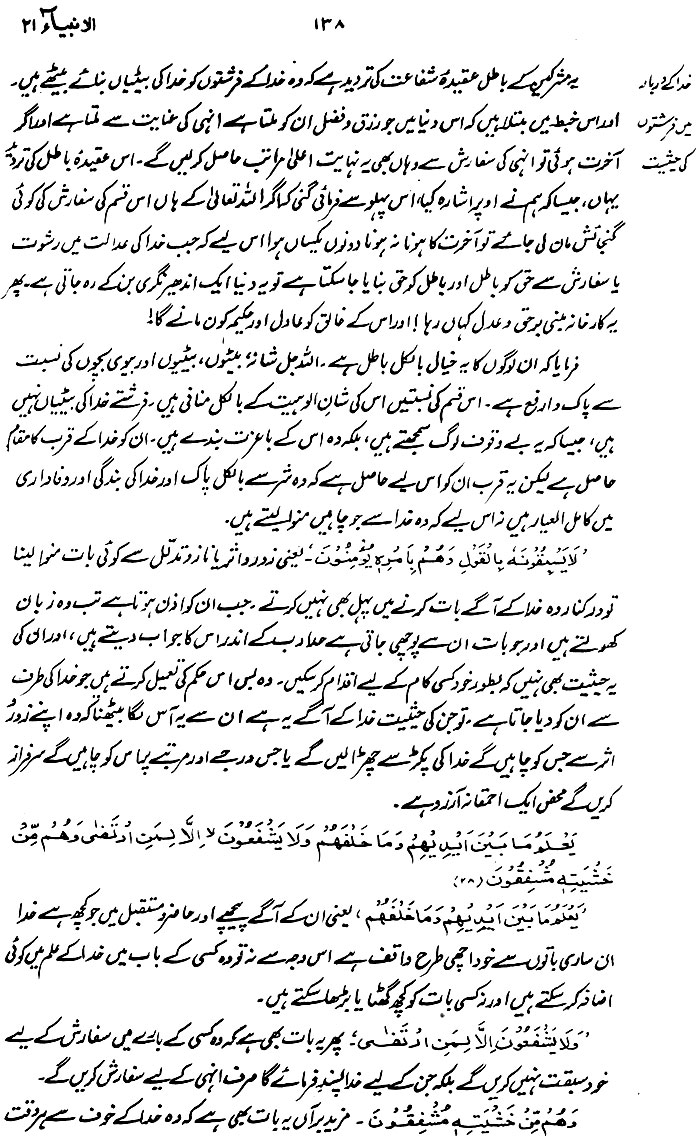 الانبیاء ۲۱
۱۳۸
خدا کے دربار
میں فرشتوں
کی حیثیت
یہ مشرکین کے باطل عقیدۂ شفاعت کی تردید ہے کہ وہ خدا کے فرشتوں کو خدا کی بیٹیاں بنائے بیٹھے ہیں۔
اور اس خبط میں مبتلا ہیں کہ اس دنیا میں جو رزق و فضل ان کو ملتا ہے انہی کی عنایت سے ملتا ہے اور اگر
آخرت ہوئی تو انہی کی سفارش سے وہاں بھی یہ نہایت اعلیٰ مراتب حاصل کر لیں گے۔ اس عقیدۂ باطل کی تردید
یہاں، جیسا کہ ہم نے اوپر اشارہ کیا، اس پہلو سے فرمائی گئی کہ اگر اللہ تعالیٰ کے ہاں اس قسم کی سفارش کی کوئی
گنجائش مان لی جائے تو آخرت کا ہونا نہ ہونا دونوں یکساں ہوا اس لیے کہ جب خدا کی عدالت میں رشوت
یا سفارش سے حق کو باطل اور باطل کو حق بنایا جا سکتا ہے تو یہ دنیا ایک اندھیر نگری بن کے رہ جاتی ہے۔ پھر
یہ کارخانہ مبنی بر حق و عدل کہاں رہا! اور اس کے خالق کو عادل اور حکیم کون مانے گا!
فرمایا کہ ان لوگوں کا یہ خیال بالکل باطل ہے۔ اللہ جل شانہٗ بیٹوں، بیٹیوں اور بیوی بچوں کی نسبت
سے پاک و ارفع ہے۔ اس قسم کی نسبتیں اس کی شان الوہیت کے بالکل منافی ہیں۔ فرشتے خدا کی بیٹیاں نہیں
ہیں، جیسا کہ یہ بے وقوف لوگ سمجھتے ہیں، بلکہ وہ اس کے باعزت بندے ہیں۔ ان کو خدا کے قرب کا مقام
حاصل ہے لیکن یہ قرب ان کو اس لیے حاصل ہے کہ وہ شر سے بالکل پاک اور خدا کی بندگی اور وفاداری
میں کامل العیار ہیں نہ اس لیے کہ وہ خدا سے جو چاہیں منوا لیتے ہیں۔
’لَا يَسْبِقُوْنَهٗ بِالْقَوْلِ وَهُمْ بِاَمْرِهٖ يُؤْمِنُوْنَ‘۔ یعنی زور و اثر یا ناز و تدلّل سے کوئی بات منوا لینا
تو درکنار وہ خدا کے آگے بات کرنے میں پہل بھی نہیں کرتے۔ جب ان کو اذن ہوتا ہے تب وہ زبان
کھولتے ہیں اور جو بات ان سے پوچھی جاتی ہے حدِ ادب کے اندر اس کا جواب دیتے ہیں، اور ان کی
یہ حیثیت بھی نہیں کہ بطور خود کسی کام کے لیے اقدام کر سکیں۔ وہ بس اس حکم کی تعمیل کرتے ہیں جو خدا کی طرف
سے ان کو دیا جاتا ہے۔ تو جن کی حیثیت خدا کے آگے یہ ہے ان سے یہ آس لگا بیٹھنا کہ وہ اپنے زور و
اثر سے جس کو چاہیں گے خدا کی پکڑ سے چھڑا لیں گے یا جس درجے اور مرتبے پر اس کو چاہیں گے سرفراز
کریں گے محض ایک احمقانہ آرزو ہے۔
يَعْلَمُ مَا بَيْنَ اَيْدِيْهِمْ وَمَا خَلْفَهُمْ وَلَا يَشْفَعُوْنَ لا اِلَّا لِمَنِ ارْتَضٰى وَهُمْ مِّنْ
خَشْيَتِهٖ مُشْفِقُوْنَ (۲۸)
’يَعْلَمُ مَا بَيْنَ اَيْدِيْهِمْ وَمَا خَلْفَهُمْ‘، یعنی ان کے آگے پیچھے اور حاضر و مستقبل میں جو کچھ ہے خدا
ان ساری باتوں سے خود اچھی طرح واقف ہے اس وجہ سے نہ تو وہ کسی کے باب میں خدا کے علم میں کوئی
اضافہ کر سکتے ہیں اور نہ کسی بات کو کچھ گھٹا یا بڑھا سکتے ہیں۔
’وَلَا يَشْفَعُوْنَ اِلَّا لِمَنِ ارْتَضٰى‘؛ پھر یہ بات بھی ہے کہ وہ کسی کے بارے میں سفارش کے لیے
خود سبقت نہیں کریں گے بلکہ جن کے لیے خدا پسند فرمائے گا صرف انہی کے لیے سفارش کریں گے۔
وَهُمْ مِّنْ خَشْيَتِهٖ مُشْفِقُوْنَ۔ مزید برآں یہ بات بھی ہے کہ وہ خدا کے خوف سے ہر وقت